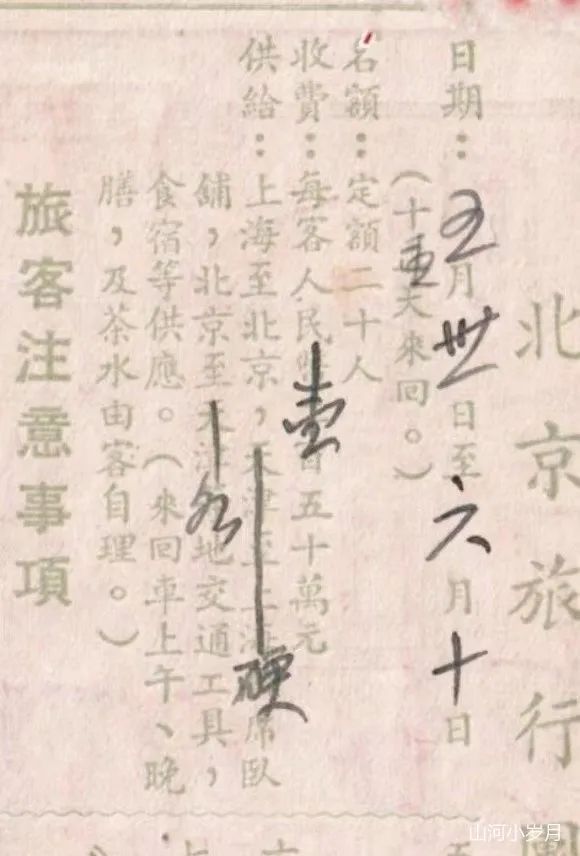 北京旅行
日期：五月卅日至六月十日
（十天來回。）
名額：定額二十人
收費：每客人民幣壹百五十萬元
供給：上海至北京，天津至上海硬席臥
鋪，北京至天津各地交通工具，
食宿等供應。（來回車上午、晚
膳，及茶水由客自理。）
旅客注意事項
山河小岁月